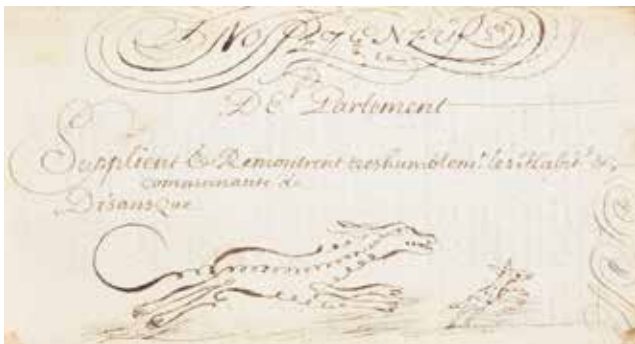 A NOSSEIGNEURS
De Parlement
Supplient & Remontrent treshumblem.t habit.s &
communauté de
Disans Que